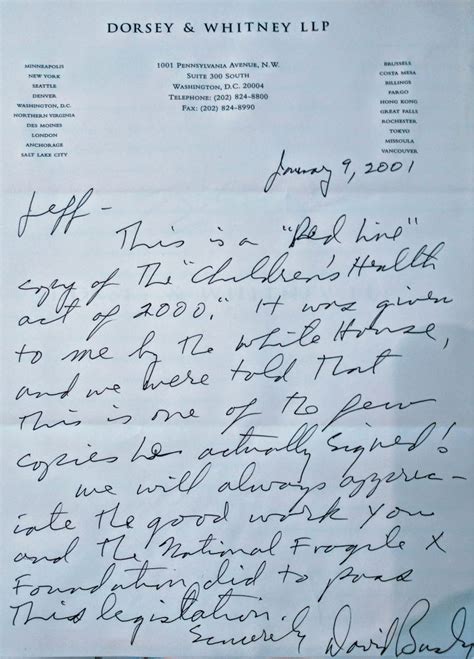 DORSEY & WHITNEY LLP
MINNEAPOLIS
NEW YORK
SEATTLE
DENVER
WASHINGTON, D.C.
NORTHERN VIRGINIA
DES MOINES
LONDON
ANCHORAGE
SALT LAKE CITY
1001 PENNSYLVANIA AVENUE, N.W.
SUITE 300 SOUTH
WASHINGTON, D.C. 20004
TELEPHONE: (202) 824-8800
FAX: (202) 824-8990
BRUSSELS
COSTA MESA
BILLINGS
FARGO
HONG KONG
GREAT FALLS
ROCHESTER
TOKYO
MISSOULA
VANCOUVER
January 9, 2001
Jeff -
This is a "Red Line"
copy of The "Children's Health
act of 2000." It was given
to me by the White House,
and we were told That
This is one of the few
copies he actually signed!
We will always apprec-
iate the good work you
and The National Fragile X
Foundation did to pass
This legislation.
Sincerely David Busby